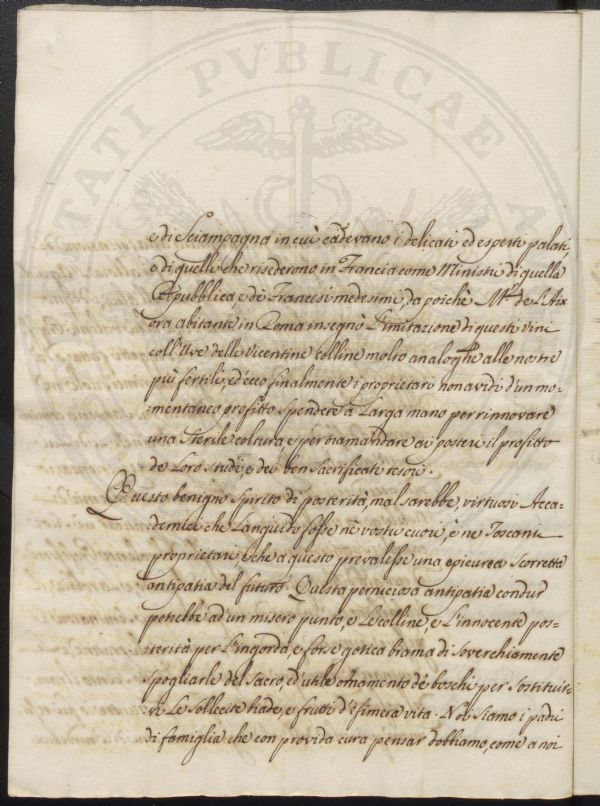 PVBLICAE
e di Sciampagna in cui cadevano i delicati ed esperti palati,
e di quelli che risederono in Francia come Ministri di quella
Repubblica, e de Francesi medesimi, da poichè Mr. de L'Aix
ora abitante in Roma insegnò l'imitazione di questi vini
coll'Uve delle Vicentine Colline molto analoghe alle nostre
più fertili, ed ecco finalmente i proprietari non avidi d'un mo=
=mentaneo profitto spendere a Larga mano per rinnovare
una Sterile coltura, e per tramandare ai posteri il profitto
de Loro studi, e dei ben Sacrificati tesori.
Questo benigno Spirito di posterità, mal sarebbe, virtuosi Acca=
demici che Languido fosse ne vostri cuori, e ne Toscani
proprietari, e che a questo prevalesse una epicurea scorretta
antipatia del futuro. Questa perniciosa antipatia condur
potrebbe ad un misero punto, e Le colline, e L'innocente pos=
=terità per L'ingorda, e forse gotica brama di soverchiamente
spogliarle del Sacro, ed utile ornamento de boschi per sostituir=
vi Le sollecite biade, e frutti d'efimera vita. Noi siamo i padri
di famiglia che con provida cura pensar dobbiamo, come a noi